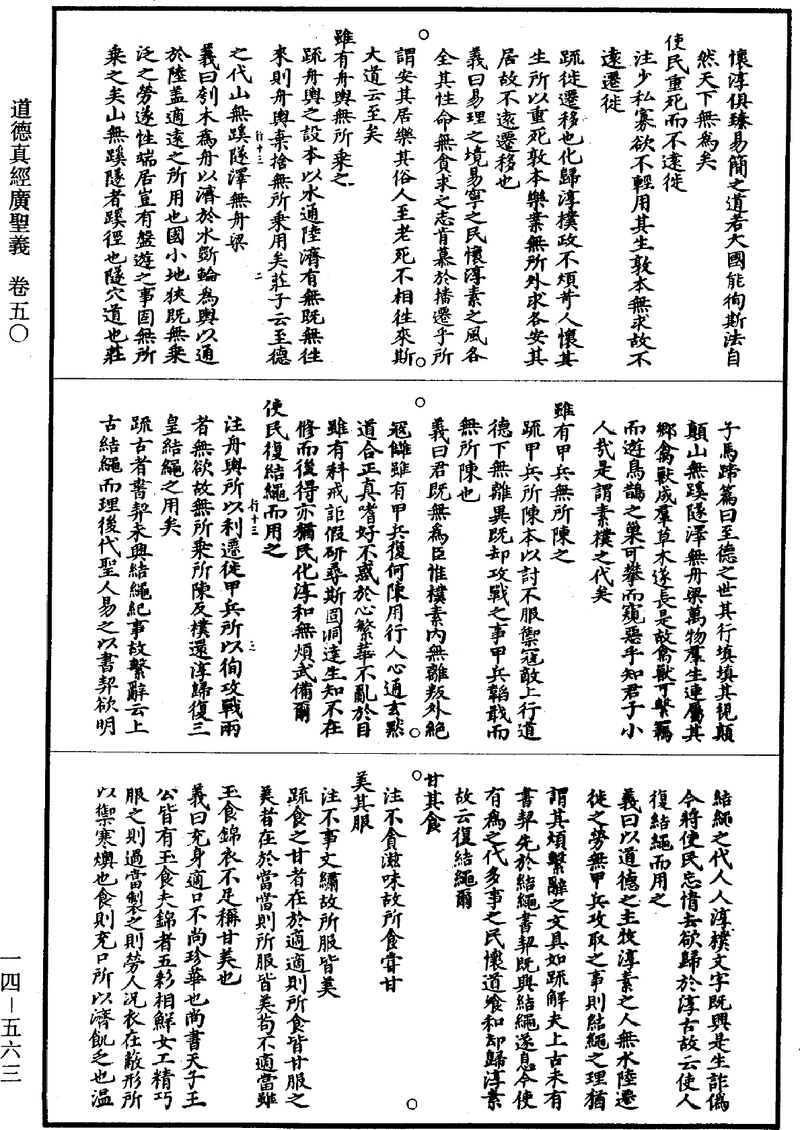 道德真經廣聖義　卷五〇
懷淳俱臻易簡之道若大國能徇斯法自
然天下無為矣
使民重死而不遠徙
注少私寡欲不輕用其生敦本無求故不
遠遷徙
疏徙遷移也化歸淳樸政不煩苛人懷其
生所以重死敦本樂業無所外求各安其
居故不遠遷移也
義曰易理之境易寧之民懷淳素之風各
全其性命無貪求之志肯慕於播遷乎所
謂安其居樂其俗人至老死不相往來斯
大道云至矣
雖有舟輿無所乘之
疏舟輿之設本以水通陸濟有無既無往
來則舟輿棄捨無所乘用矣莊子云至德
行十三　二
之代山無蹊隧澤無舟梁
義曰刳木為舟以濟於水斲輪為輿以通
於陸蓋適遠之所用也國小地狹既無乘
泛之勞遂性端居豈有盤遊之事固無所
乘之矣山無蹊隧者蹊徑也隧穴道也莊
子馬蹄篇曰至德之世其行填填其視顛
顛山無蹊隧澤無舟梁萬物羣生連屬其
鄉禽獸成羣草木遂長是故禽獸可繫羈
而遊鳥鵲之巢可攀而窺惡乎知君子小
人哉是謂素樸之代矣
雖有甲兵無所陳之
疏甲兵所陳本以討不服禦寇敵上行道
德下無離異既却攻戰之事甲兵韜戢而
無所陳也
義曰君既無為臣惟樸素內無離叛外絕
冦讎雖有甲兵復何陳用行人心通玄默
道合正真嗜好不惑於心繁華不亂於目
雖有科戒詎假研尋斯固洞達生知不在
修而後得亦猶民化淳和無煩武備爾
使民復結繩而用之
行十三　三
注舟輿所以利遷徙甲兵所以徇攻戰兩
者無欲故無所乘所陳反樸還淳歸復三
皇結繩之用矣
疏古者書契未興結繩紀事故繫辭云上
古結繩而理後代聖人易之以書契欲明
結繩之代人人淳樸文字既興是生詐偽
今將使民忘情去欲歸於淳古故云使人
復結繩而用之
義曰以道德之主牧淳素之人無水陸遷
徙之勞無甲兵攻取之事則結繩之理猶
謂其煩繫辭之文具如疏解夫上古未有
書契先於結繩書契既興結繩遂息今使
有為之代多事之民懷道飡和却歸淳素
故云復結繩爾
甘其食
注不貪滋味故所食甞甘
美其服
注不事文繡故所服皆美
疏食之甘者在於適適則所食皆甘服之
美者在於當當則所服皆美苟不適當雖
玉食錦衣不足稱甘美也
義曰充身適口不尚珍華也尚書天子王
公皆有玉食夫錦者五彩相鮮女工精巧
服之則過當製之則勞人況衣在蔽形所
以禦寒燠也食則充口所以濟飢乏也溫
一四－五六三